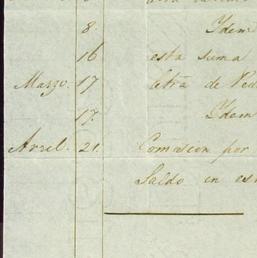 8. Ydem
16 esta suma
Marzo. 17 letra de Ped
17. Ydem
Avril. 21 Comision por
Saldo en es